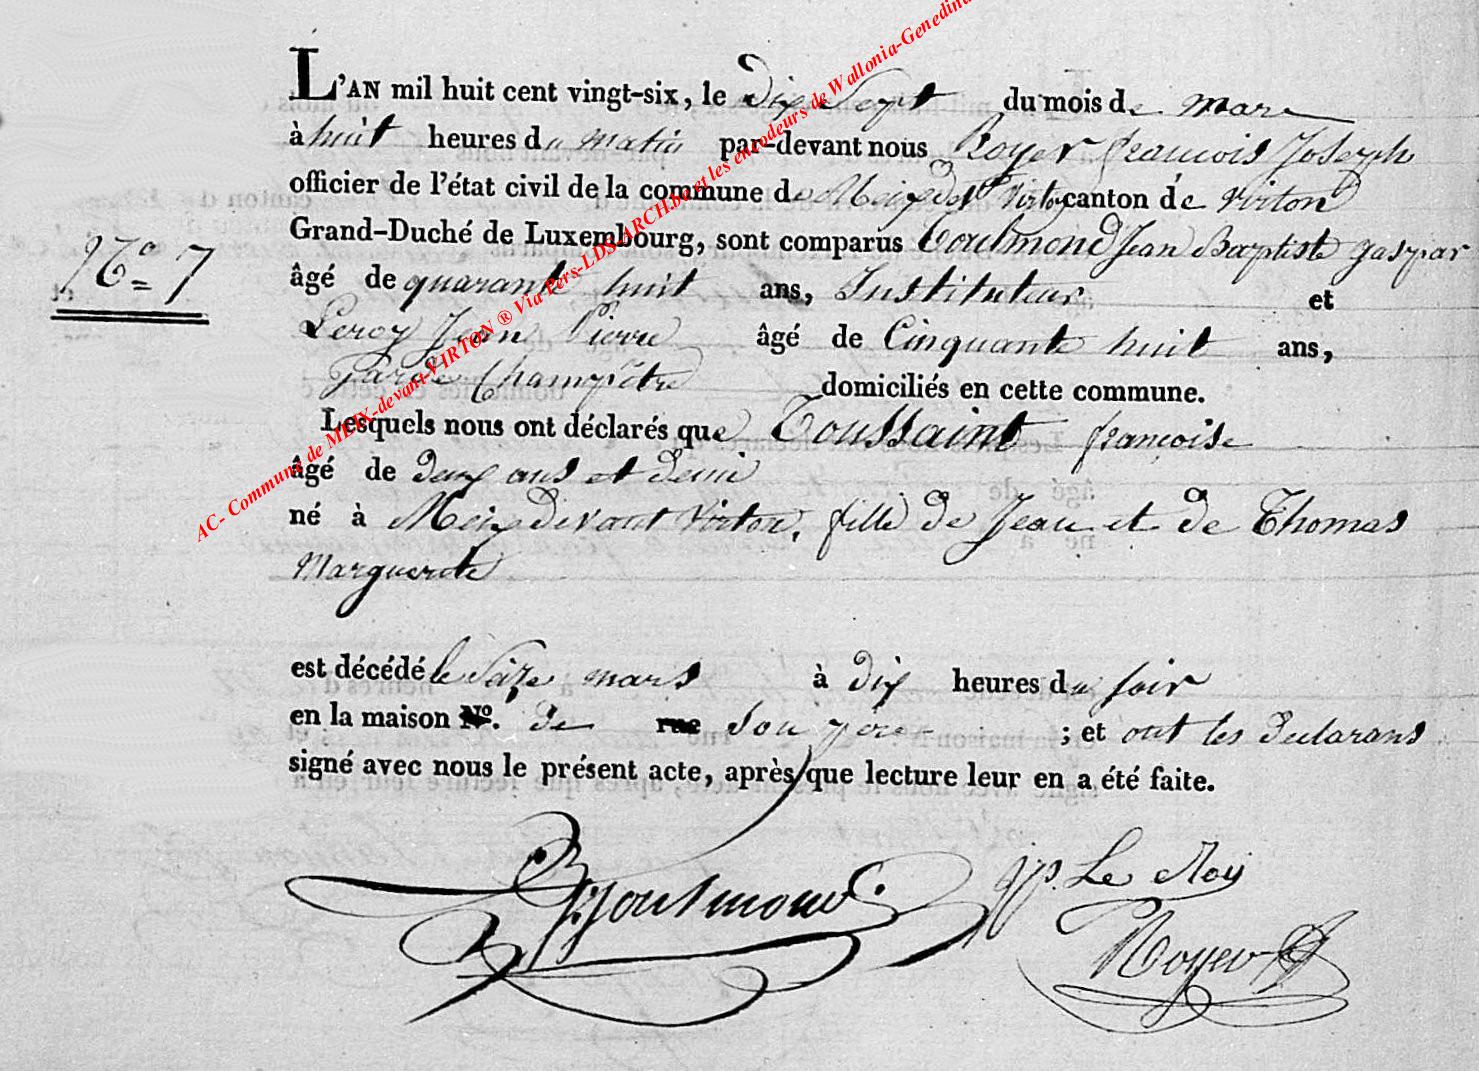 L'AN mil huit cent vingt-six, le dix Sept du mois de mars
à huit heures du matin par-devant nous Royer françois Joseph
officier de l'état civil de la commune de Meix devt Virton canton de virton
Grand-Duché de Luxembourg, sont comparus Toulmond Jean Baptiste gaspar
âgé de quarante huit ans, Instituteur et
Leroy Jean Pierre âgé de Cinquante huit ans,
Garde Champêtre domiciliés en cette commune.
Lesquels nous ont déclarés que Toussaint françoise
âgé de deux ans et demi
né à Meix devant Virton, fille de Jean et de Thomas
Marguerite
est décédé le Seize mars à dix heures du soir
en la maison No. de rue son père ; et ont les declarans
signé avec nous le présent acte, après que lecture leur en a été faite.
No 7
Toulmond
JP. Le Roy
Royer
AC- Commune de MEIX-devant-VIRTON ® Via Pers-LDS-ARCH.be et les encodeurs de Wallonia-Genedina